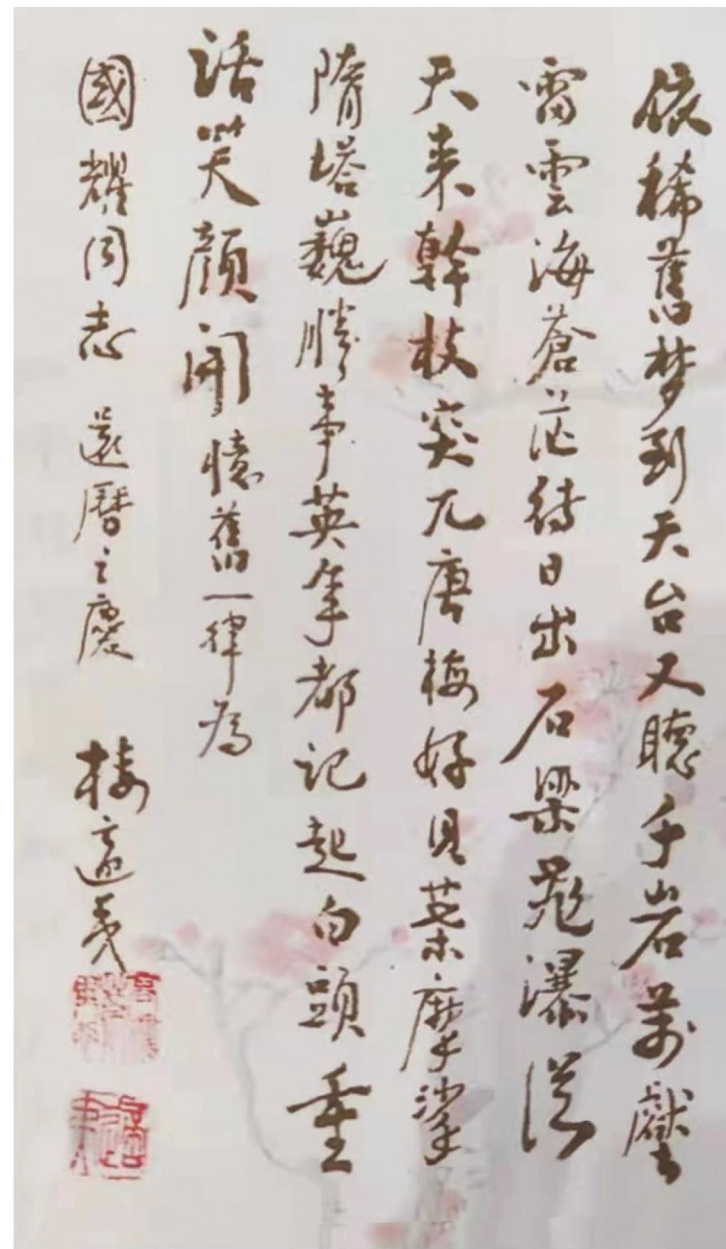 依稀舊梦到天台又聽千岩萬壑
雷雲海蒼茫待日出石梁飛瀑從
天来幹枝突兀唐梅好貝葉摩挲
隋塔巍勝事英年都記起白頭重
話笑顔開憶舊一律為
國耀同志 還曆之慶 楼適夷